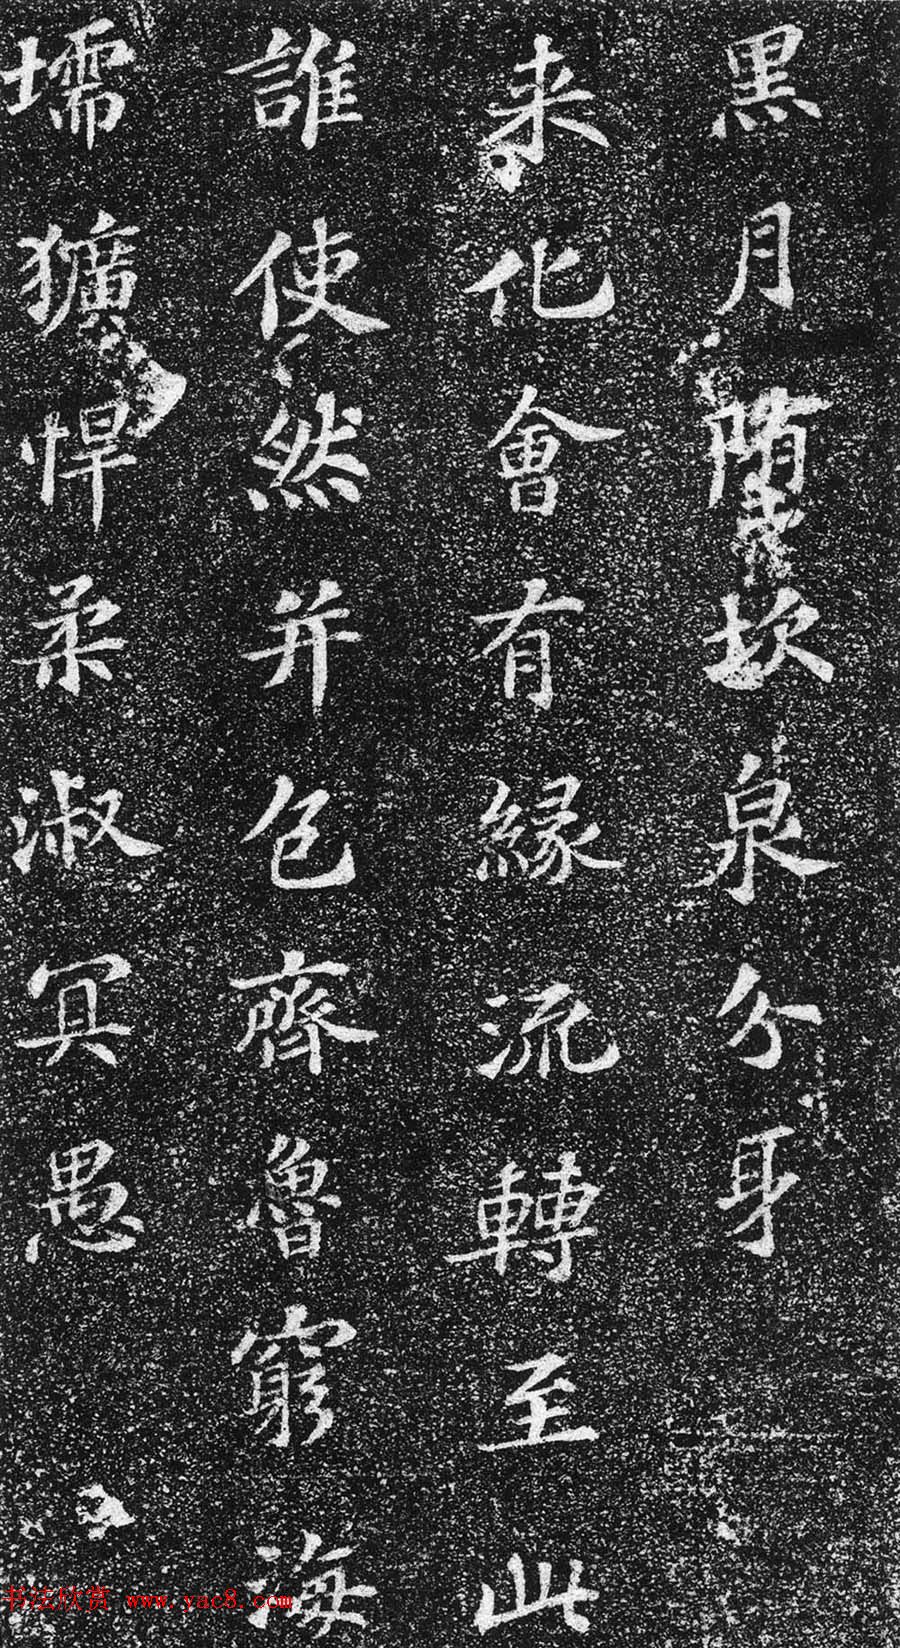 黑月墮坎泉分身
来化會有緣流轉至此
誰使然并包齊魯窮海
壖獷悍柔淑冥愚
书法欣赏 www.yac8.com